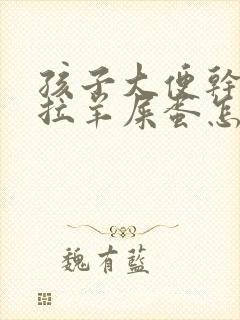 孩子大便幹
拉羊屎蛋怎
魏有藍